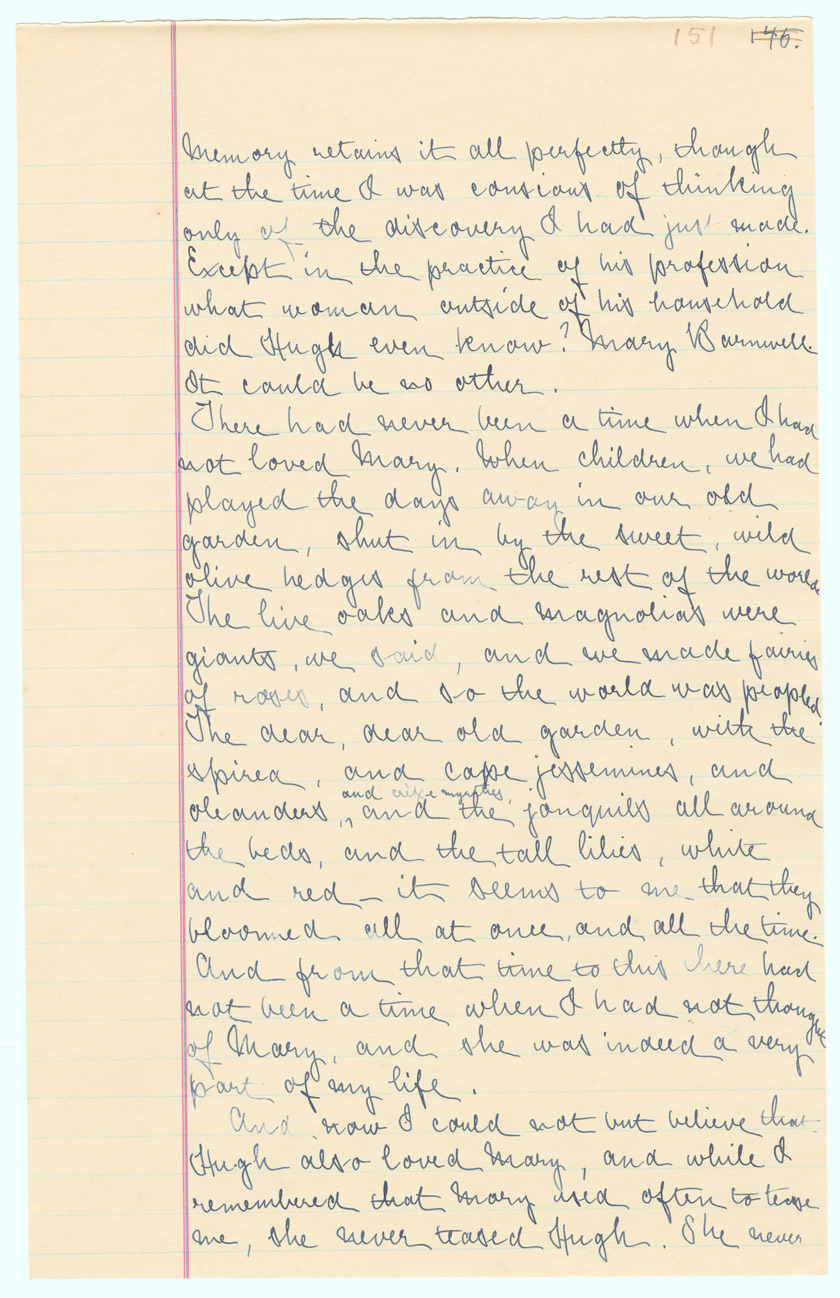 151 146.
Memory retains it all perfectly, though
at the time I was consious of thinking
only of the discovery I had just made.
Except in the practice of his profession
what woman outside of his household
did Hugh even know? Mary Barnwell.
It could be no other.
There had never been a time when I had
not loved Mary. When children, we had
played the days away in our old
garden, shut in by the sweet, wild
olive hedges from the rest of the world.
The live oaks and magnolias were
giants, we said, and we made fairies
of roses, and so the world was peopled.
The dear, dear old garden, with the
spirea, and cape jessemines, and
and crêpe myrtles,
oleanders, and the jonquils all around
the beds, and the tall lilies, white
and red – it seems to me that they
bloomed all at once, and all the time.
And from that time to this there had
not been a time when I had not thought
of Mary, and she was indeed a very
part of my life.
And now I could not but believe that
Hugh also loved Mary, and while I
remembered that Mary used often to tease
me, she never teased Hugh. She never